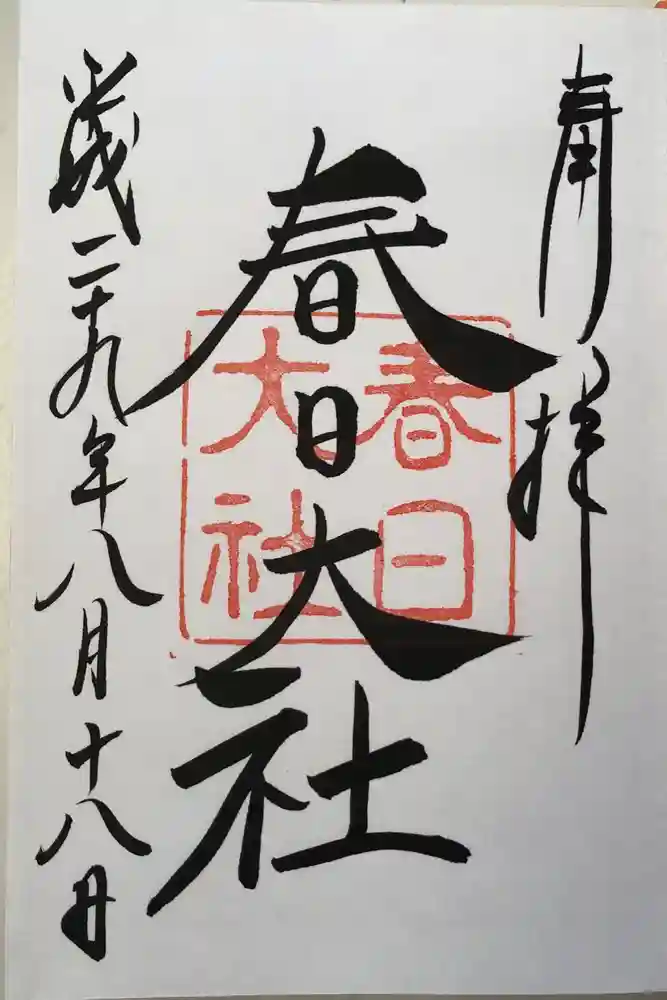 奉拝
春日大社
春日
大社
平成二十九年八月十八日